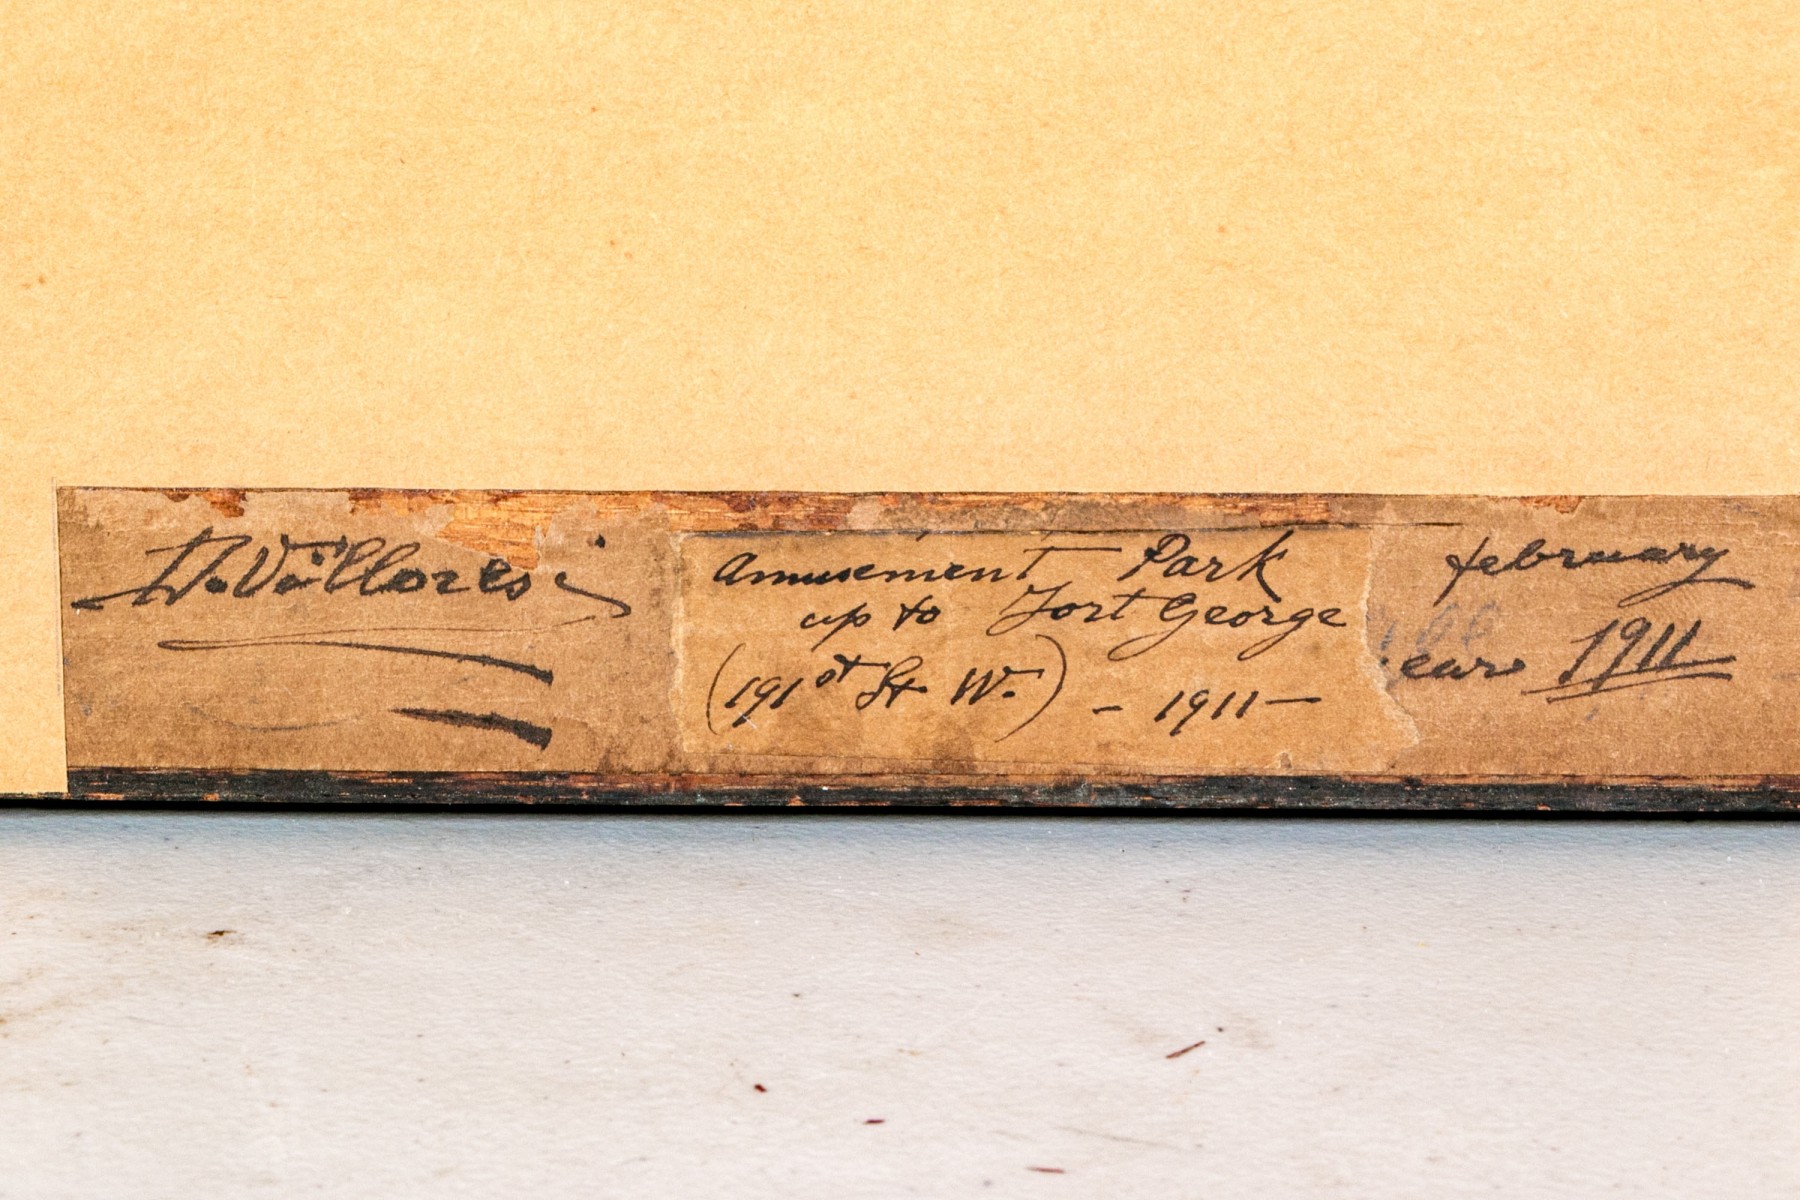 D. Villores
Amusement Park
up to Fort George
(191st St. W.) - 1911 -
february
ear 1911